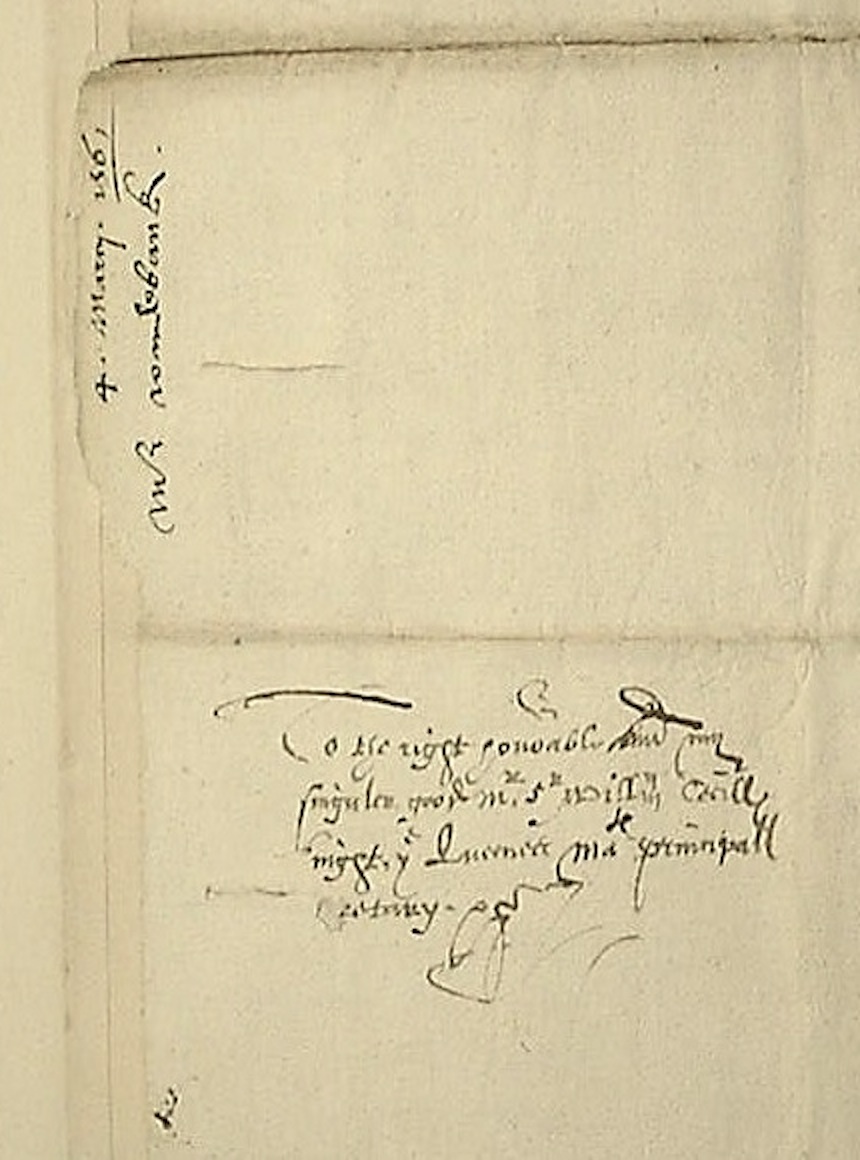 4. Marcij. 156
Mr
To the right honorable and my
singuler good Mr. Sr Willm Cecill
knight, ye Queenes Matie principall
Secretary.